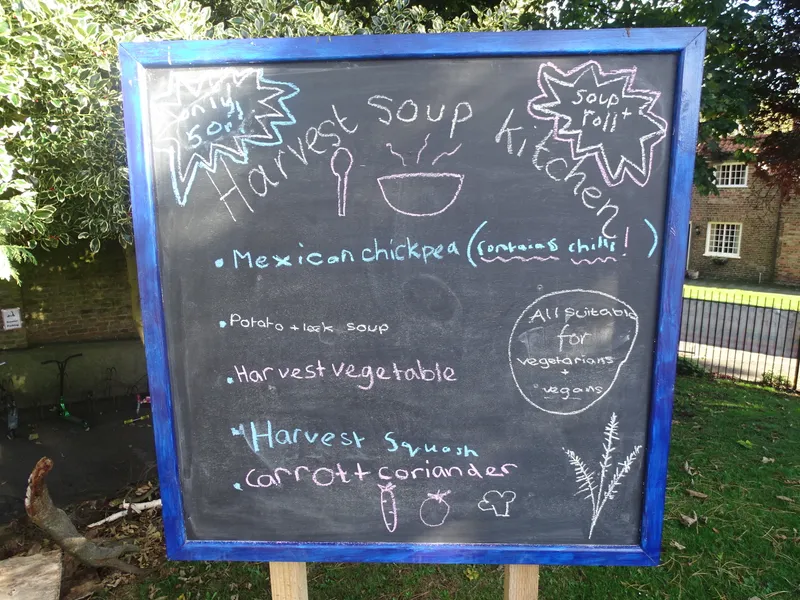 only
50p
Harvest soup Kitchen
soup +
roll
• Mexican chickpea (contains chilli!)
• Potato + leek soup
• Harvest vegetable
• Harvest Squash
• Carrott coriander
All suitable
for
vegetarians
+
vegans